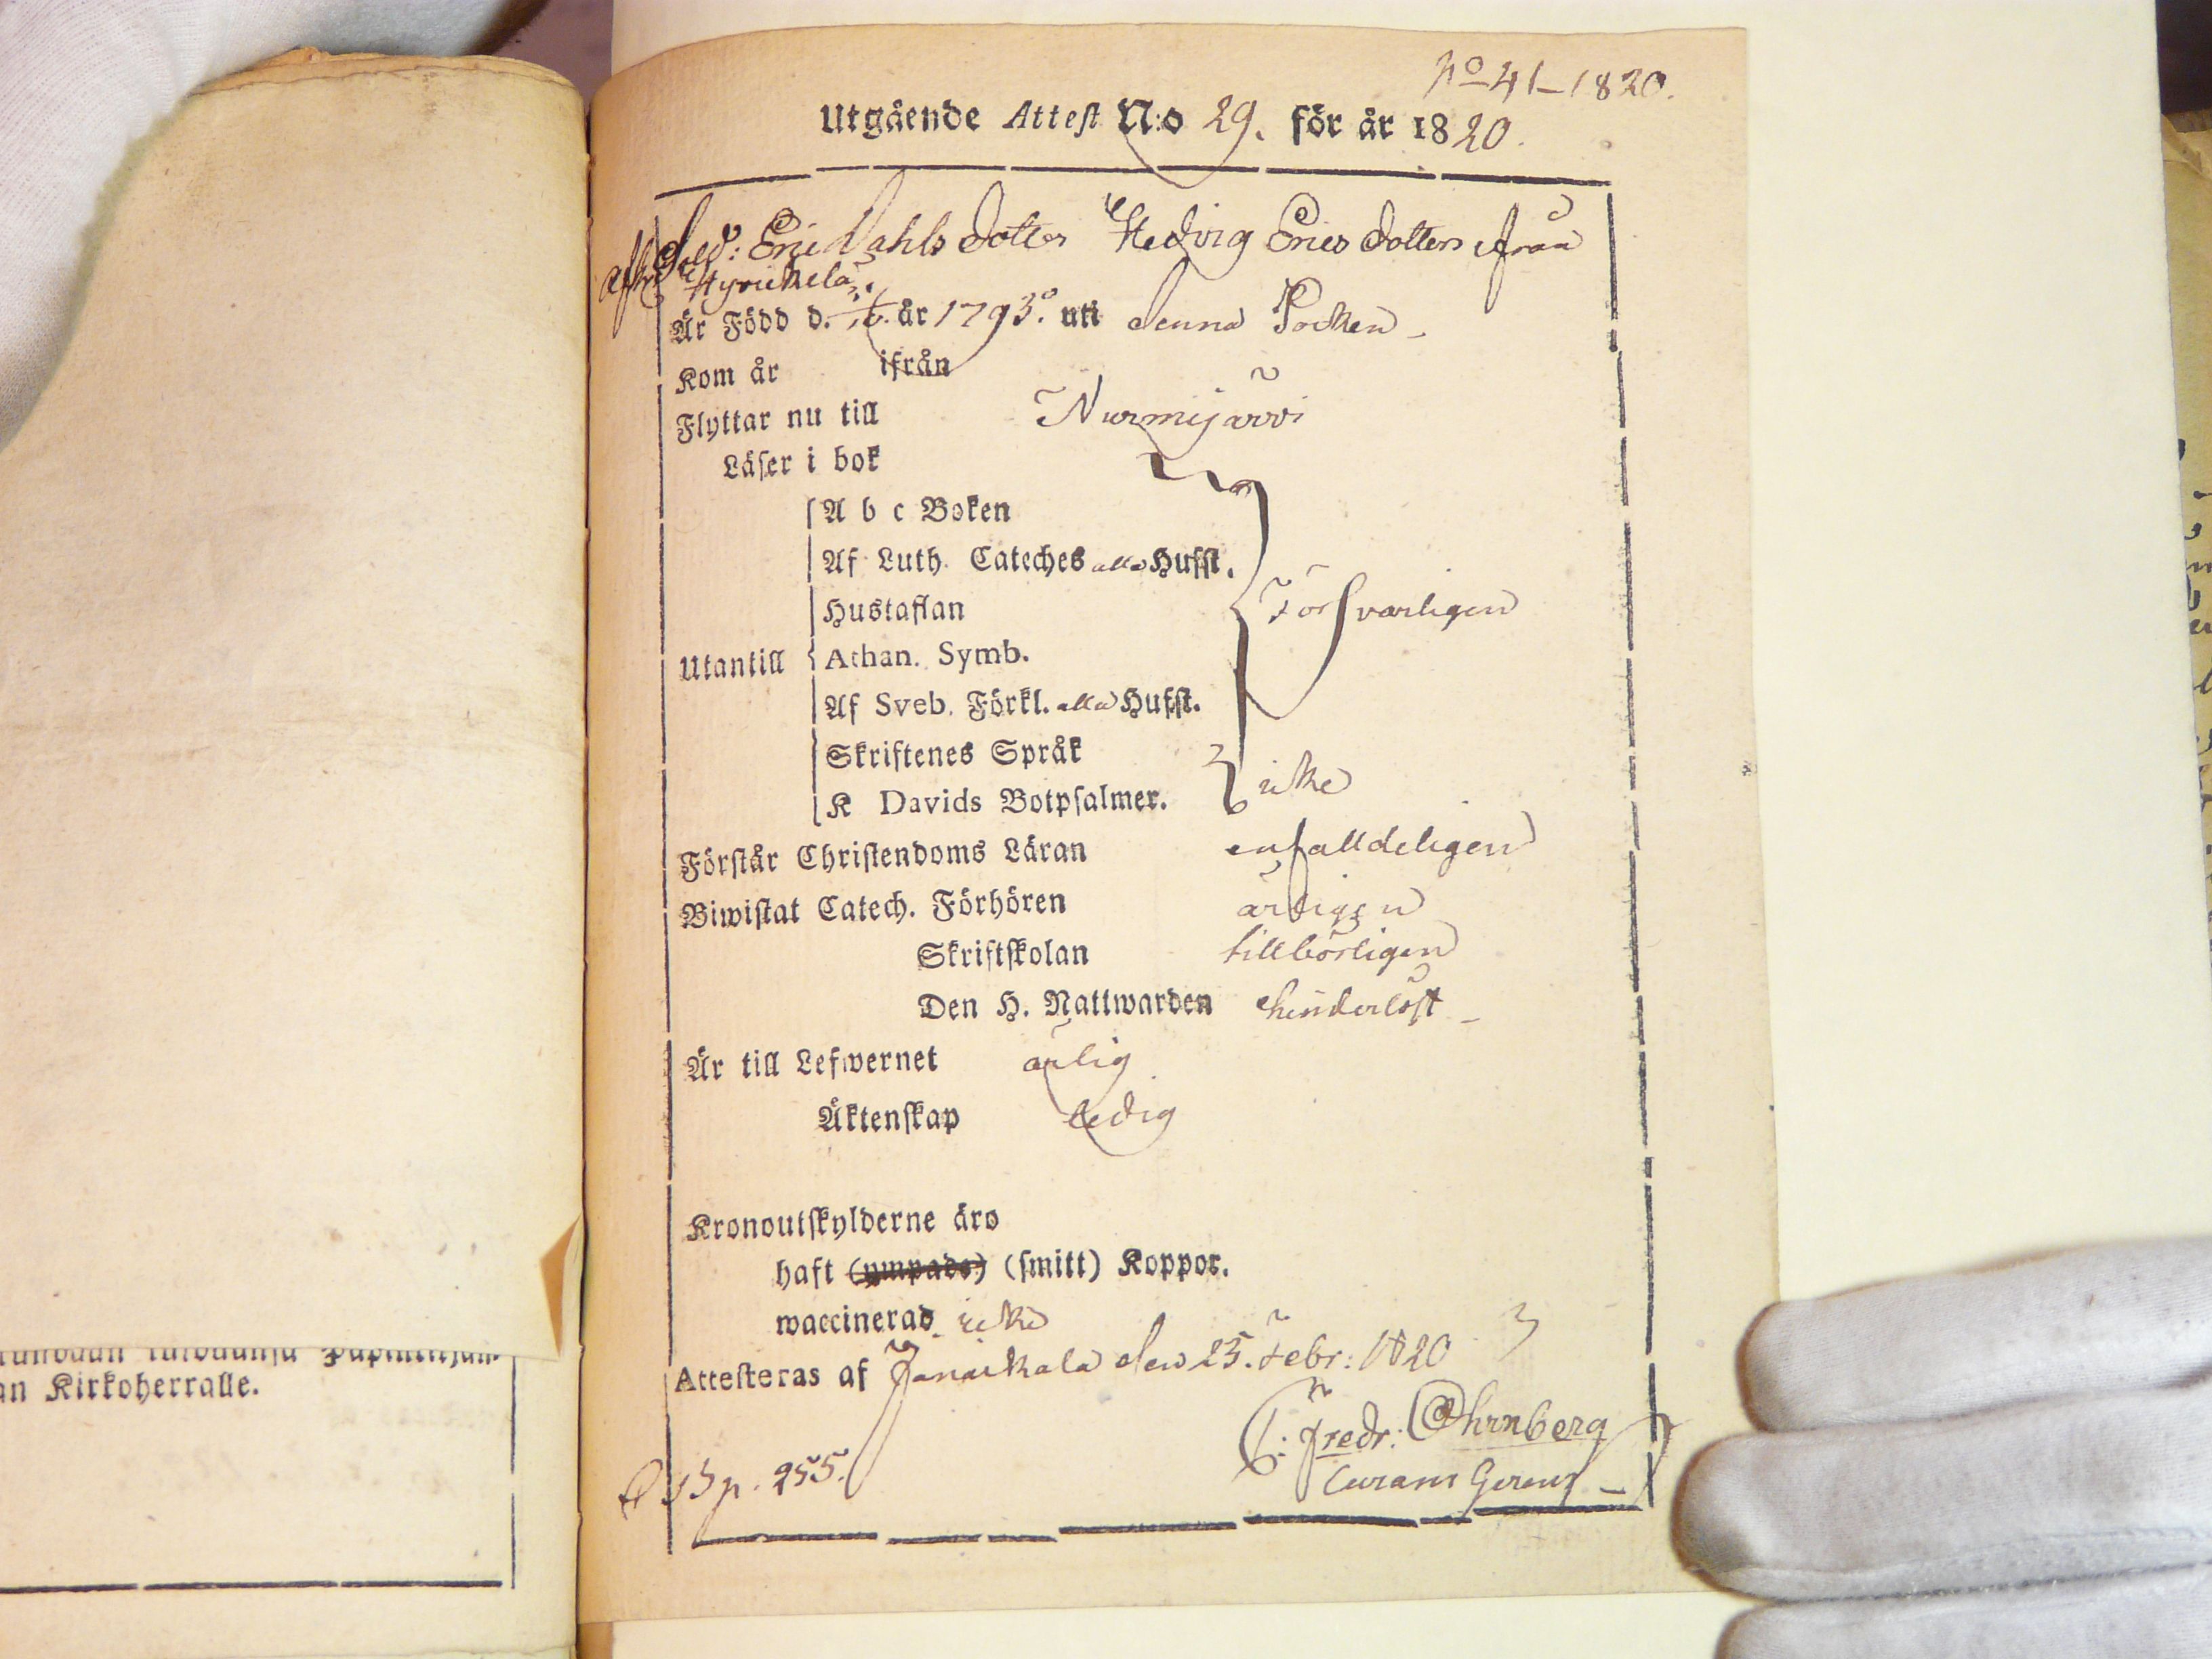 No 41–1820.
Utgående Attest N:o 29. för år 1820.
Sold: Eric Dahls dotter Hedvig Erics dotter ifrån
Hyvickelä,
Är Född d. år 1793. uti denna Socken –
Kom år ifrån
Flyttar nu till Nurmijärvi
Läser i bok
A b c Boken
Af Luth. Cateches alla Hufst.
Hustaflan Försvarligen
Utantill Athan. Symb.
Af Sveb. Förkl. alla Hufst.
Skriftenes Språk
K Davids Botpsalmer. icke
Förstår Christendoms Läran enfalldeligen
Biwistat Catech. Förhören årligen
Skriftskolan tillbörligen
Den H. Nattwarden hinderlöst –
Är till Lefwernet ärlig
Äktenskap ledig
Kronoutskylderne äro
haft (ympade) (smitt) Koppor.
waccinerad icke
Attesteras af Janakkala den 25. Febr: 1820
Fredr: Ohrnberg
Curam Gerens –
p. 255.
an Kirkoherralle.